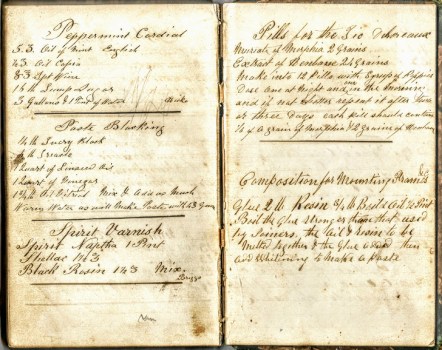 Peppermint Cordial
5 3 Oil of Mint English
4 3 Oil Capia
8 3 Spt Wine
14 lb Lump Sugar
3 Gallons & 1 Pint of Water Mix
Paste Blacking
4 lb Ivery Black
lb Treacle
1 Quart of Linseed Oil
1 Quart of Vinegar
Oil Vitriol Mix & Add as Much
Warm Water as will Make Paste with 6 3 Gum
Spirit Varnish
Spirit Naptha 1 Pint
Shellac 14 3
Black Rosin 14 3 Mix
Pills for the Tic Doloreaux
Muriate of Morphia 2 Grains
Extract of Henbane 24 Grains
Make into 12 Pills with
Dose one at Night and in the Morning
and if not better repeat it after
at three Days each Pill should contain
of a Grain of Morphia & 2 Grains of Henbane
Composition for Mounting Frames
Glue 2 lb Rosin lb Boild Oil Pint
Boil the Glue stronger than that used
by Joiners, the Oil & Rosin to be
Melted together & the Glue added then
add Whitening to Make a Paste